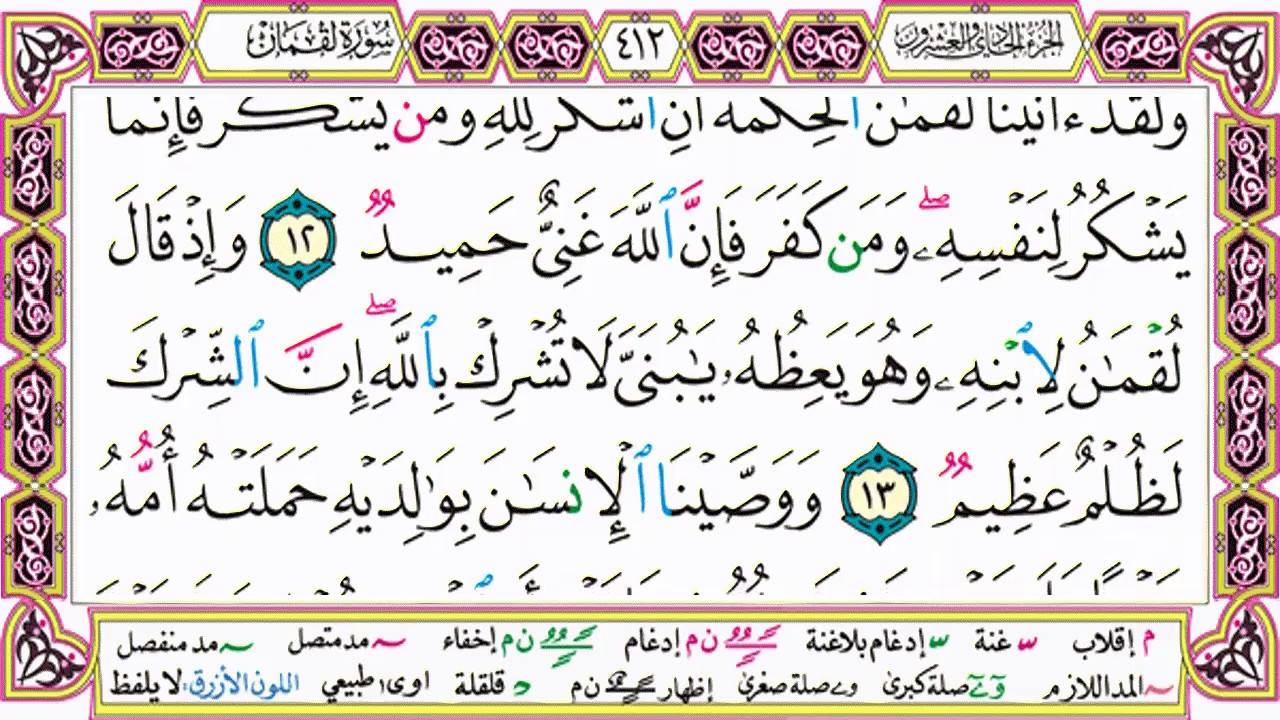 الجزء الحادي والعشرون
٤١٢
سورة لقمان
ولقد ءاتينا لقمٰن ٱلحكمة أن ٱشكر لله ومن يشكر فإنما
يَشْكُرُ لِنَفْسِهِۦ ۖ وَمَن كَفَرَ فَإِنَّ ٱللَّهَ غَنِىٌّ حَمِيدٌ ١٢ وَإِذْ قَالَ
لُقْمَٰنُ لِٱبْنِهِۦ وَهُوَ يَعِظُهُۥ يَٰبُنَىَّ لَا تُشْرِكْ بِٱللَّهِ ۖ إِنَّ ٱلشِّرْكَ
لَظُلْمٌ عَظِيمٌ ١٣ وَوَصَّيْنَا ٱلْإِنسَٰنَ بِوَٰلِدَيْهِ حَمَلَتْهُ أُمُّهُۥ
م إقلاب ّ غنة ّ إدغام بلاغنة ن م إدغام ن م إخفاء ~ مد متصل ~ مد منفصل
~ المد اللازم و ے صلة كبرى و ے صلة صغرى إظهار ن م د قلقلة اوى طبيعي اللون الأزرق: لا يلفظ